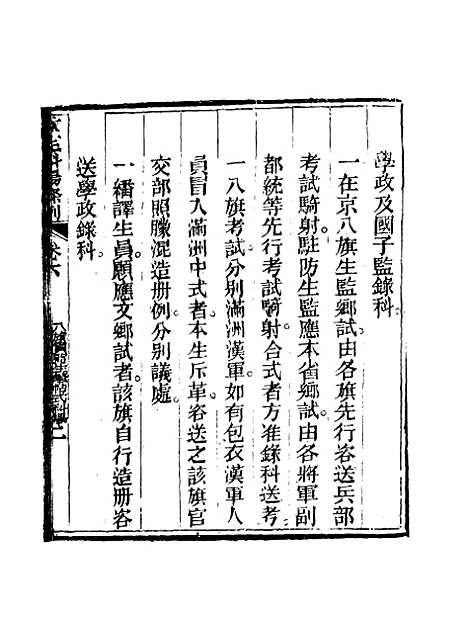 學政及國子監錄科。
一在京八旗生監鄉試。由各旗先行咨送兵部
考試騎射。駐防生監應本省鄉試。由各將軍副
都統等先行考試騎射。合式者方准錄科送考
一八旗考試。分別滿洲漢軍。如有包衣漢軍人
員冒入滿洲中式者。本生斥革。咨送之該旗官
交部照朦混造册例。分別議處。
一繙譯生員。願應文鄉試者。該旗自行造册咨
送學政錄科。
欽定科場條例
卷六